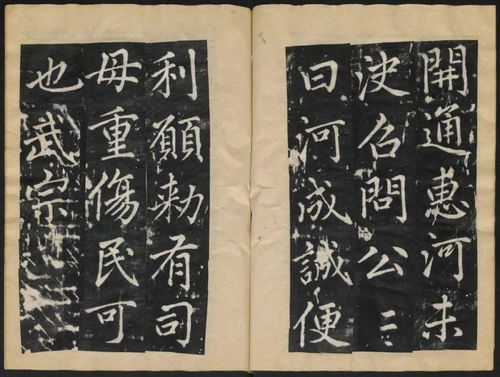 開通惠河未
決召問公〻
曰河成誠便
利願勅有司
毋重傷民可
也武宗